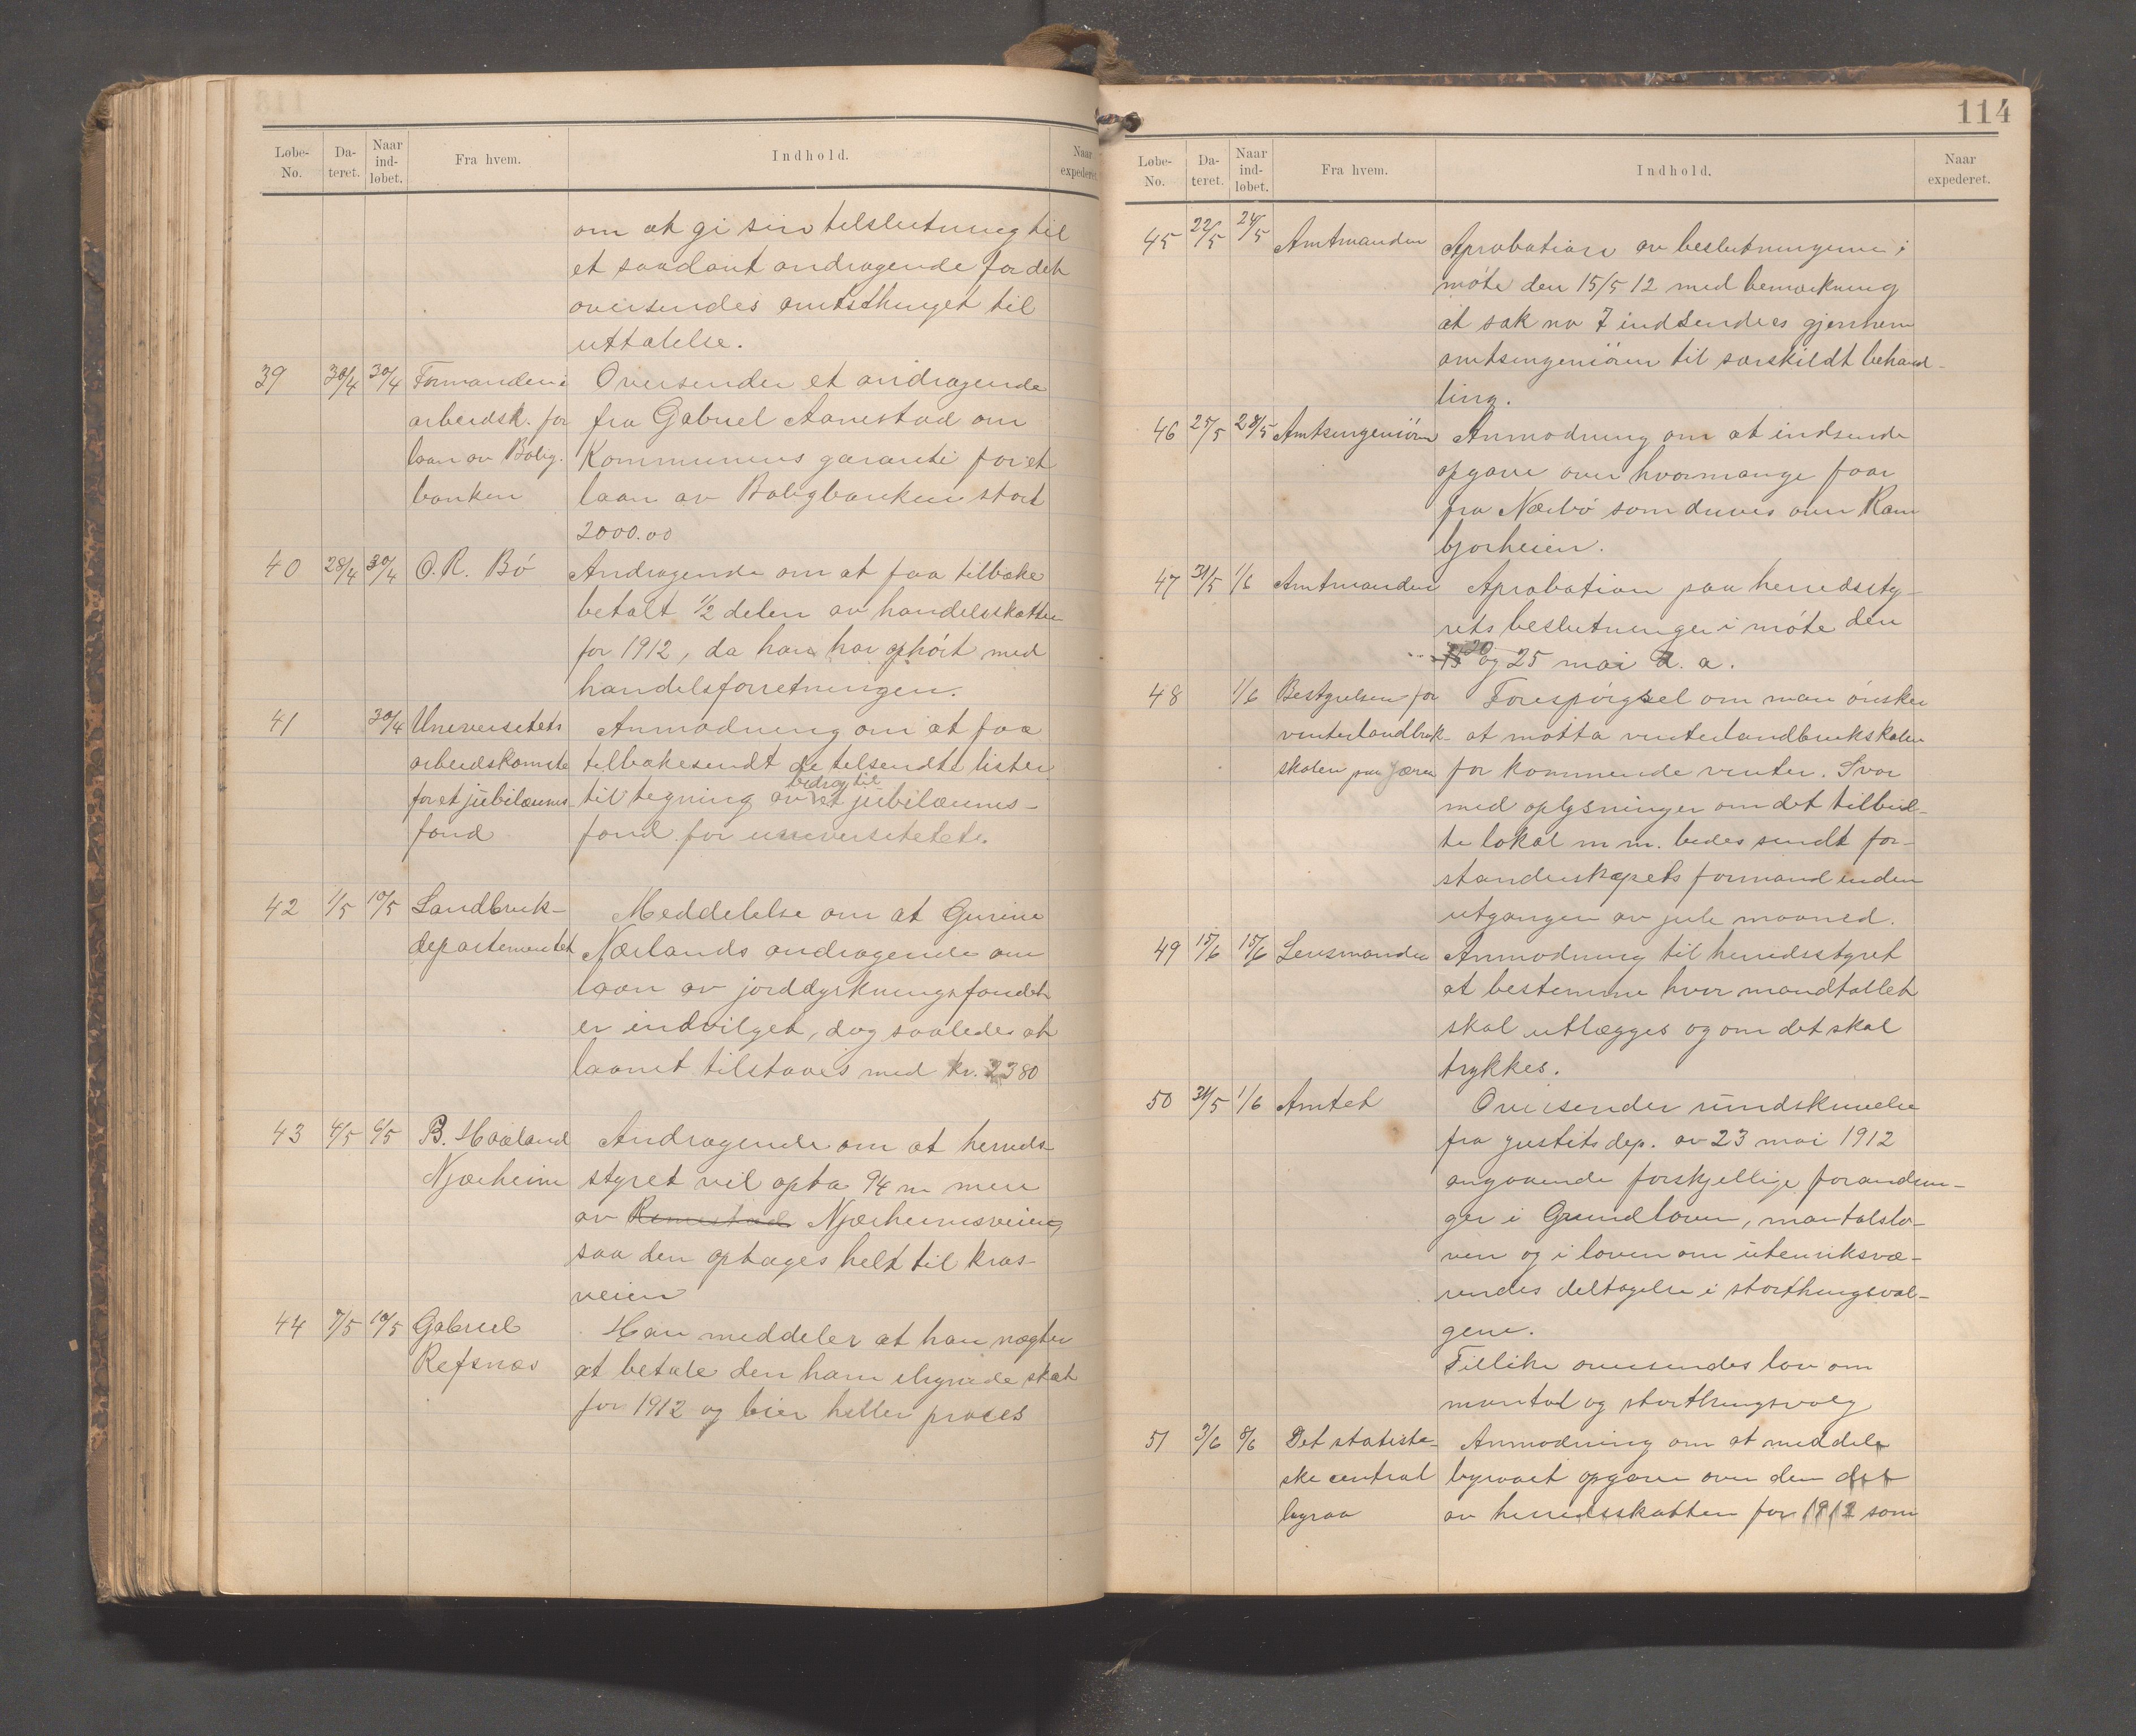 Løbe-
No.
Da-
teret.
Naar
ind-
løbet.
Fra hvem.
Indhold.
Naar
expederet.
om at gi sin tilslutning til
et saadant andragende før det
oversendes amtsthinget til
uttalelse.
39 30/4 30/4 Formanden i Oversender et andragende
arbeidsk. for fra Gabriel Aanestad om
laan av Bolig- Kommunens garanti for et
banken laan av Boligbanken stort
2000.00
40 28/4 30/4 O. R. Bø Andragende om at faa tilbake
betalt 1/2 delen av handelsskatten
for 1912, da han har ophørt med
handelsforretningen.
41 30/4 Universitets Anmodning om at faa
arbeidskomite tilbakesendt de tilsendte lister
for et jubilæums- til tegning av bidrag til et jubilæums-
fond fond for universitetet.
42 1/5 10/5 Landbruk- Meddelelse om at Gurine
departementet Nærlands andragende om
laan av jorddyrkningsfondet
er indvilget, dog saaledes at
laanet tilstaaes med kr. 2380
43 4/5 6/5 B. Haaland Andragende om at herreds-
Njærheim styret vil opta 94 m mere
av Njærheimsveien
saa den optages helt til kros-
veien
44 7/5 10/5 Gabriel Han meddeler at han nægter
Refsnes at betale den ham ilignede skat
for 1912 og bier heller proces
114
Løbe-
No.
Da-
teret.
Naar
ind-
løbet.
Fra hvem.
Indhold.
Naar
expederet.
45 22/5 24/5 Amtmanden Aprobation av beslutningerne i
møte den 15/5 12 med bemerkning
at sak no 7 indsendes gjennem
amtsingeniøren til særskildt behand-
ling.
46 25/5 28/5 Amtsingeniøren Anmodning om at indsende
opgave over hvormange faar
fra Nærbø som drives over Ram
bjorheien.
47 31/5 1/6 Amtmanden Aprobation paa herredssty-
rets beslutninger i møte den
20 og 25 mai d. a.
48 1/6 Bestyrelsen for Forespørgsel om man ønsker
vinterlandbruk- at motta vinterlandbrukskolen
skolen paa Jæren for kommende vinter. Svar
med oplysninger om det tilbud-
te lokal m m. bedes sendt for-
standerskapets formand inden
utgangen av juli maaned.
49 15/6 15/6 Lensmanden Anmodning til herredsstyret
at bestemme hvor mandtallet
skal utlægges og om det skal
trykkes.
50 31/5 1/6 Amtet Oversender rundskrivelse
fra justitsdep. av 23 mai 1912
angaaende forskjellige forandrin-
ger i Grundloven, mantalslo-
ven og i loven om utenriksvæ-
rendes deltagelse i storthingsval-
gene.
Tillike oversendes lov om
mantal og storthingsvalg
51 3/6 8/6 Det statisti- Anmodning om at meddele
ske central byraaet opgave over den del
byraa av herredsskatten for 1912 som